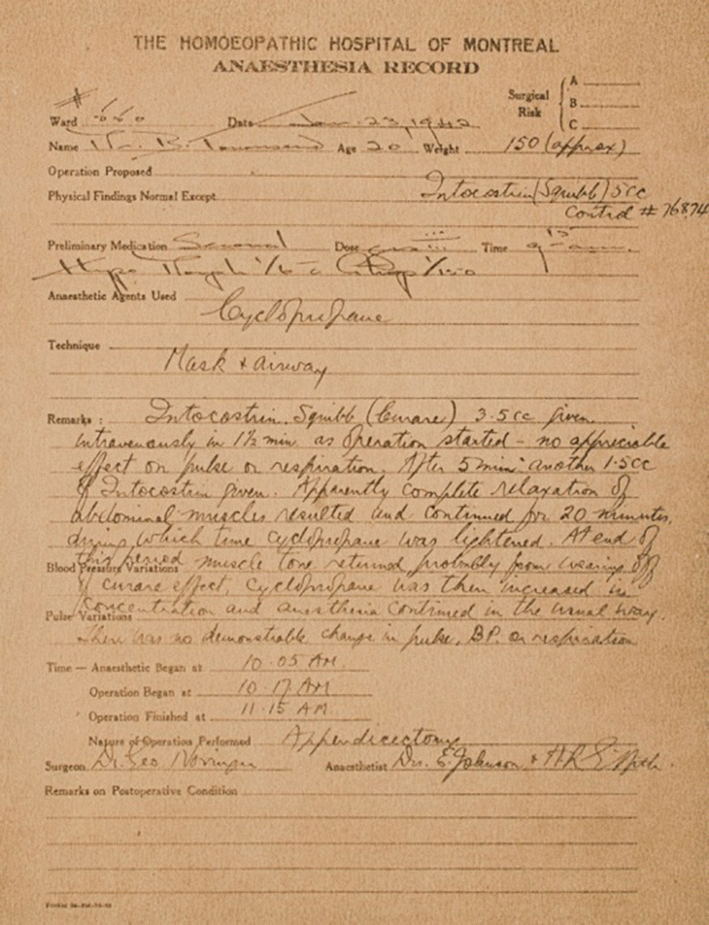 THE HOMOEOPATHIC HOSPITAL OF MONTREAL
ANAESTHESIA RECORD
Surgical Risk A
B
C
Ward # Date Jan. 23, 1942
Name B. Age 20 Weight 150 (approx)
Operation Proposed
Physical Findings Normal Except Intocostrin (Squibb) 5cc
Control # 76874
Preliminary Medication Seconal Dose Time 9 15 a.m.
Hypo 1/6 c 1/150
Anaesthetic Agents Used
Cyclopropane
Technique
Mask & airway
Remarks : Intocostrin. Squibb (Curare) 3.5cc given
intravenously in 1½ min as operation started – no appreciable
effect on pulse or respiration. After 5 min another 1.5cc
of Intocostin given. Apparently complete relaxation of
abdominal muscles resulted and continued for 20 minutes,
during which time cyclopropane was lightened. At end of
this period muscle tone returned probably from wearing off
Blood Pressure Variations
of curare effect, cyclopropane was then increased in
concentration and anesthesia continued in the usual way.
Pulse Variations
There was no demonstrable change in pulse, B.P. or respiration
Time — Anaesthetic Began at 10.05 AM.
Operation Began at 10.17 AM
Operation Finished at 11.15 AM
Nature of Operation Performed Appendicectomy
Surgeon Dr. Geo Anaesthetist Drs. E. Johnson &
Remarks on Postoperative Condition